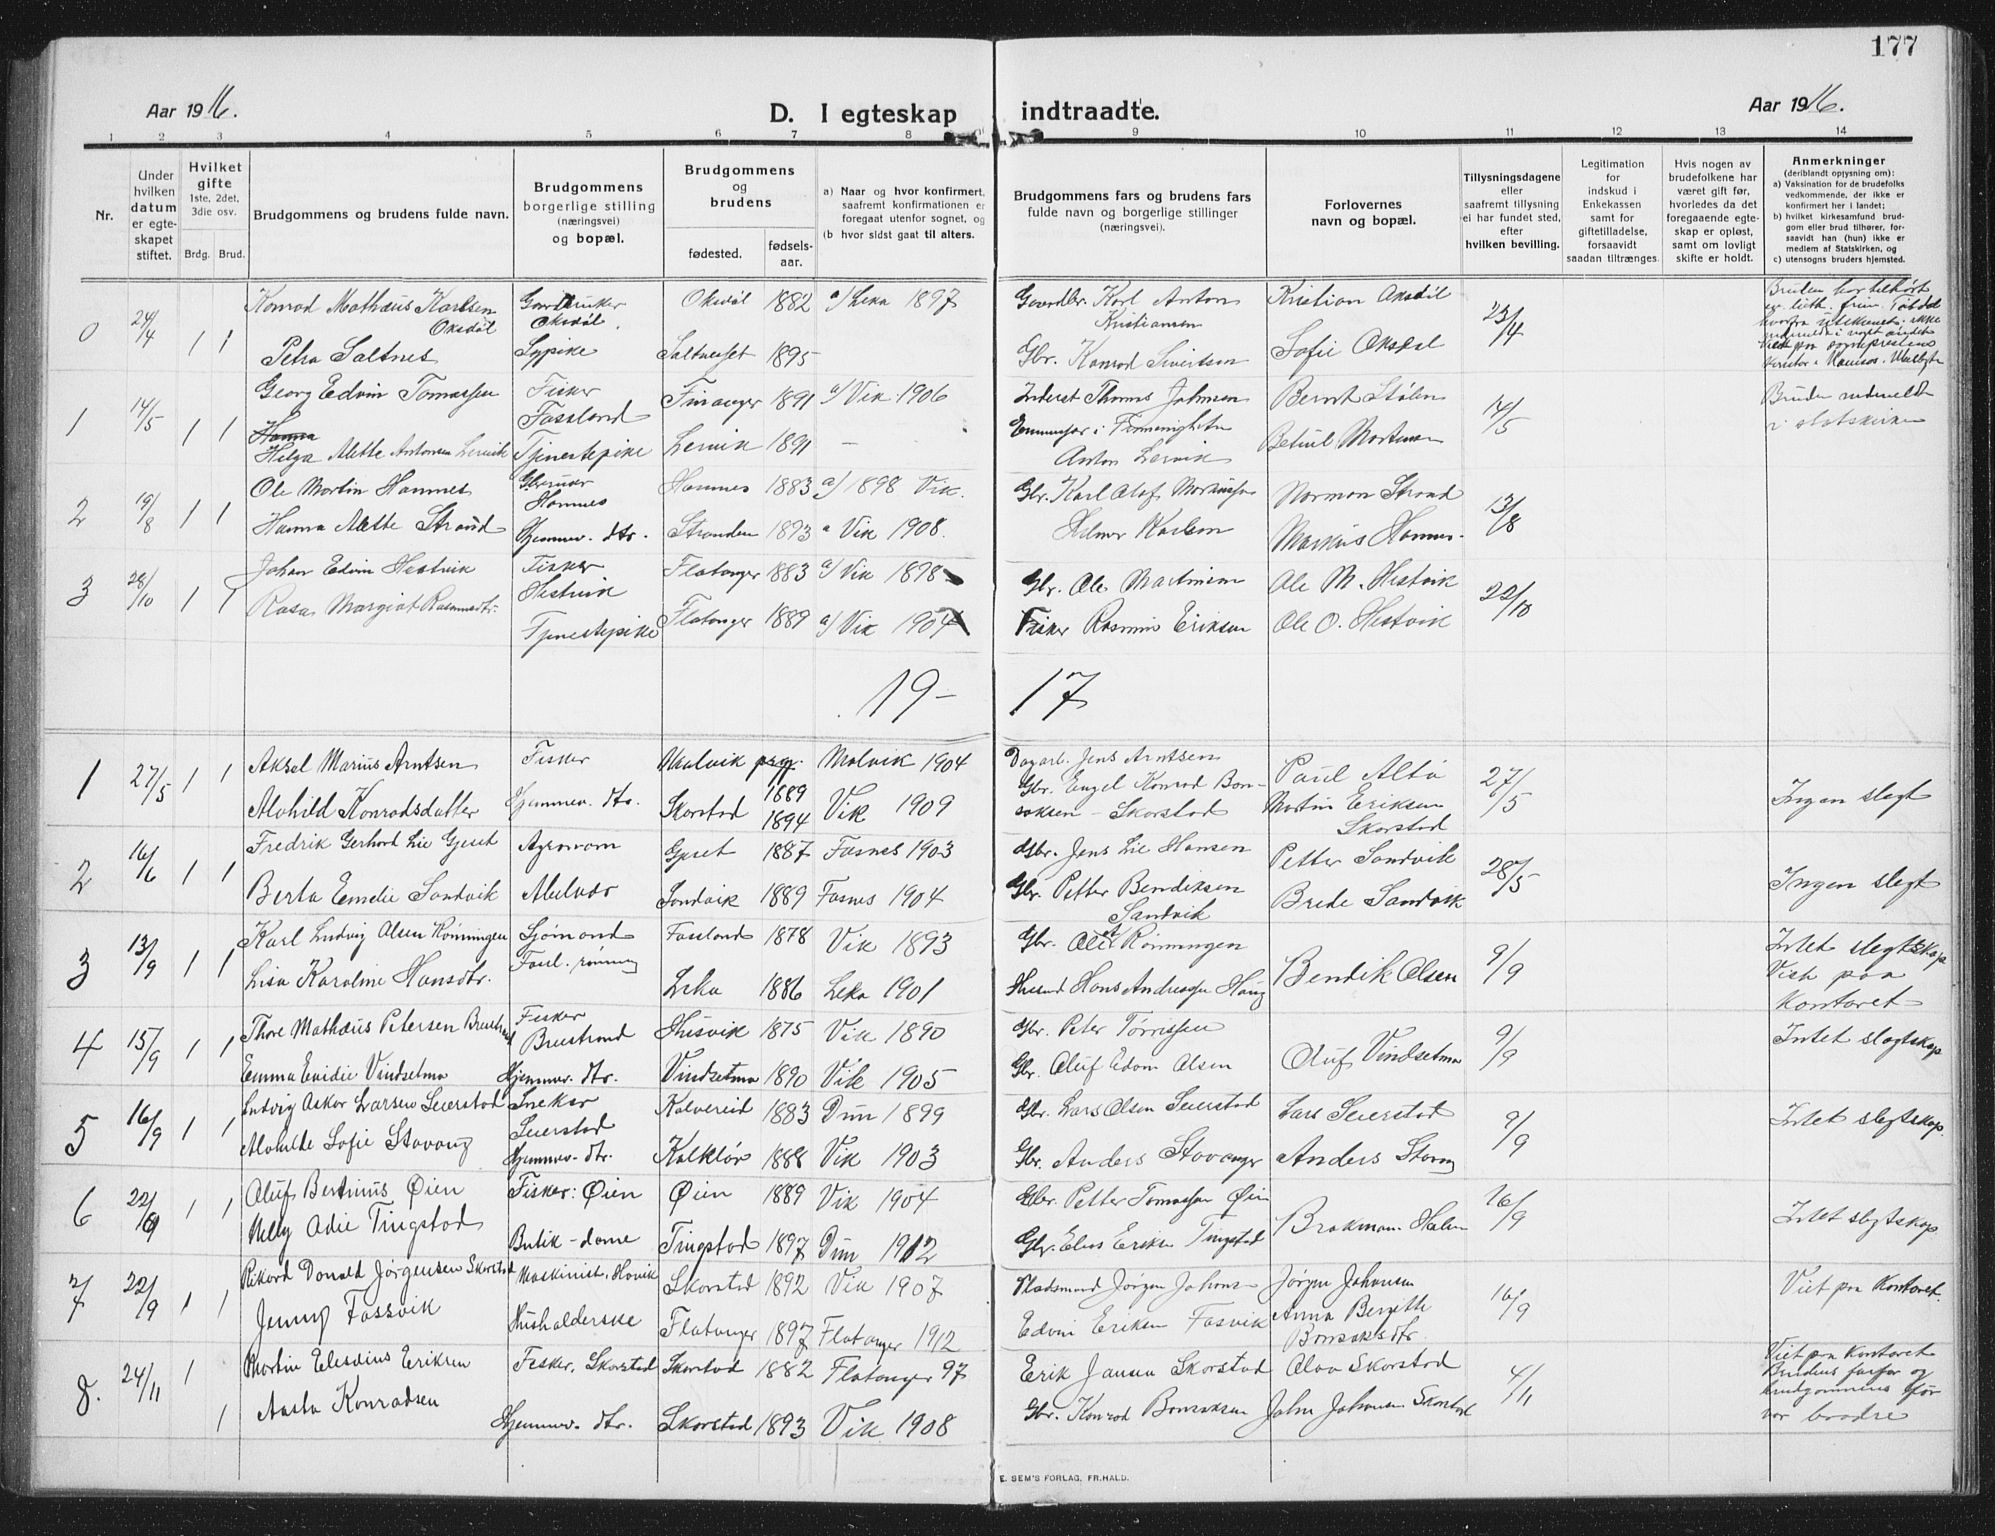 177
Aar 1916.
D. I egteskap indtraadte.
Aar 1916.
1 2 3 4 5 6 7 8 9 10 11 12 13 14
Nr.
Under hvilken datum er egte-skapet stiftet.
Hvilket gifte 1ste, 2det, 3die osv.
Brdg. Brud.
Brudgommens og brudens fulde navn.
Brudgommens borgerlige stilling (næringsvei) og bopæl.
Brudgommens og brudens
fødested. fødsels-aar.
a) Naar og hvor konfirmert, saafremt konfirmationen er foregaat utenfor sognet, og
(b hvor sidst gaat til alters.
Brudgommens fars og brudens fars fulde navn og borgerlige stillinger (næringsvei).
Forlovernes navn og bopæl.
Tillysningsdagene eller saafremt tillysning ei har fundet sted, efter hvilken bevilling.
Legitimation for indskud i Enkekassen samt for giftetilladelse, forsaavidt saadan tiltrænges.
Hvis nogen av brudefolkene har været gift før, hvorledes da det foregaaende egte-skap er opløst, samt om lovligt skifte er holdt.
Anmerkninger (deriblandt opjysning om):
a) Vaksination for de brudefolks vedkommende, der ikke er konfirmert her i landet;
b) hvilket kirkesamfund brud-gom eller brud tilhører, for-saavidt han (hun) ikke er medlem af Statskirken, og
c) utensogns bruders hjemsted.
0 24/4 1 1 Konrad Mathæus Karlsen Oksdøl Gaardbruker Oksdøl Oksdøl 1882 a) Leka 1897 Gaardbr. Karl Anton Kristiansen Kristian Oksdøl 23/4
Petra Saltnes Sypike 1895 Gbr. Konrad Sivertsen Sofie Oksdøl
1 14/5 1 1 Georg Edvin Tomassen Fisker Fossland Finanger 1891 a) Vik 1906 Inderst Thomas Johnsen Bernt Stølen 14/5 Bruden indmeldt i statskirken
Hanna
Helga Mette Antonsen Lervik Tjenestepike Lervik 1891 — Anton Lervik Betuel Mortensen
2 19/8 1 1 Ole Martin Hamnes Gbruker Hamnes Hamnes 1883 a) 1898 Vik. Gbr. Karl Olaf Norman Strand 13/8
Hanna Mette Strand Hjemmev. dtr. Stranden 1893 a Vik 1908. Helmer Karlsen Markus Hamnes.
3 28/10 1 1 Johan Edvin Hestvik Fisker Hestvik Flatanger 1883 a) Vik 1898 Gbr. Ole Martinsen Ole M. Hestvik 22/10
Rasa Margiat Rasmusdtr. Tjenestepike Flatanger 1889 a) Vik 1904 Fisker Rasmus Eriksen Ole O. Hestvik
19- 17
1 27/5 1 1 Aksel Marius Arntsen Fisker Malvik prgj. 1889 Malvik 1904 Dagarb. Jens Arntsen Paul Altø 27/5 Ingen slegt
Alvhild Konradsdatter Hjemmev. dtr. Skorstad 1894 Vik 1909 Gbr. Engel Konrad Bonsaksen - Skorstad Martin Eriksen Skorstad
2 16/6 1 1 Fredrik Gerhard Lie Gjeset Agronom Gjeset 1887 Fosnes 1903 Gbr. Jens Lie Hansen Petter Sandvik 28/5 Ingen slegt
Berta Emelie Sandvik Sandvik 1889 Fosnes 1904 Gbr. Petter Bendiksen Sandvik Brede Sandvik
3 13/9 1 1 Karl Ludvig Olsen Rønningen Sjømand Fossland 1878 Vik 1893 Gbr. Ole Rønningen Bendik Olsen 9/9 Intet slegtskap Viet paa kontoret
Lisa Karoline Hansdtr. Leka 1886 Leka 1901 Husmd Hans Andreassen Haug
4 15/9 1 1 Thore Mathæus Petersen Breistrand Fisker Breistrand Husvik 1875 Vik 1890 Gbr. Peter Tørrissen Oluf Vindsetmo 9/9 Intet slegtskap
Emma Enidie Vindsetmo Hjemmev. dtr. Vindsetmo 1890 Vik 1905 Gbr. Oluf Edvin Olsen
5 16/9 1 1 Ludvig Oskar Larsen Seierstad Snekker Seierstad Kalvereid 1883 Dun 1899 Gbr. Lars Olsen Seierstad Lars Seierstad 9/9 Intet slegtskap.
Alvhilde Sofie Stavang Hjemmev. dtr. Kalkløv 1888 Vik 1903 Gbr. Anders Stavanger Anders Stavang
6 22/9 1 1 Oluf Bertinus Øien Fisker: Øien Øien 1889 Vik 1904 Gbr. Petter Tomassen Øien Brakman Halsen 16/9 Intet slegtskap.
Nelly Odie Tingstad Butik-dame Tingstad 1897 Dun 1912 Gbr. Elias Eriksen Tingstad
7 22/9 1 1 Rikard Donald Jørgensen Skorstad Maskinist, Hovik Skorstad 1892 Vik 1907 Pladsmand Jørgen Johansen Jørgen Johansen 16/9 Viet paa kontoret.
Jenny Fossvik Husholderske Flatanger 1897 Flatanger 1912 Edvin Eriksen Fosvik Anna Bergitte Bonsaksdtr.
8. 24/11 1 1 Martin Elesæus Eriksen Fisker, Skorstad Skorstad 1882 Flatanger 97 Erik Jansen Skorstad Olav Skorstad 4/11 Viet paa kontoret Brudens farfar og brudgommens far var brødre
Aasta Konradsen Hjemmev. dtr. Skorstad 1893 Vik 1908 Gbr. Konrad Bonsaksen John Johansen Skorstad
E. SEM'S FORLAG, FR.HALD.